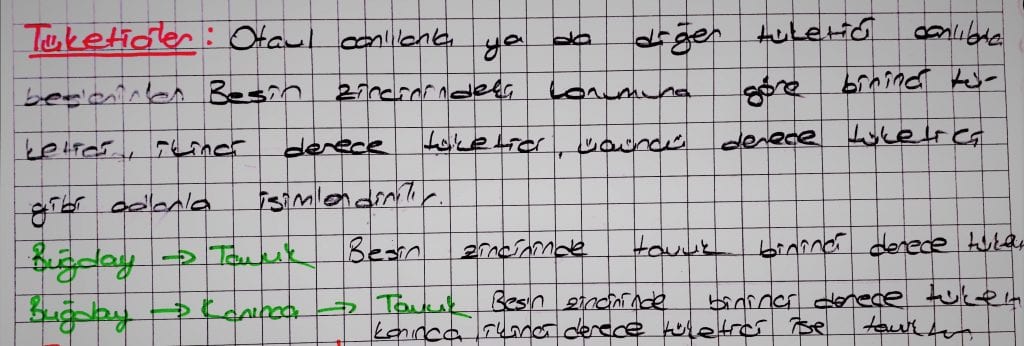 Tüketiciler: Otçul canlılarla ya da diğer tüketici canlılarla
beslenirler Besin zincirindeki konumuna göre birinci tü-
ketici, ikinci derece tüketici, üçüncü derece tüketici
gibi adlarla isimlendirilir.
Buğday → Tavuk Besin zincirinde tavuk birinci derece tüke
Buğday → Karınca → Tavuk Besin zincirinde birinci derece tüketi
karınca, ikinci derece tüketici ise tavuktur.